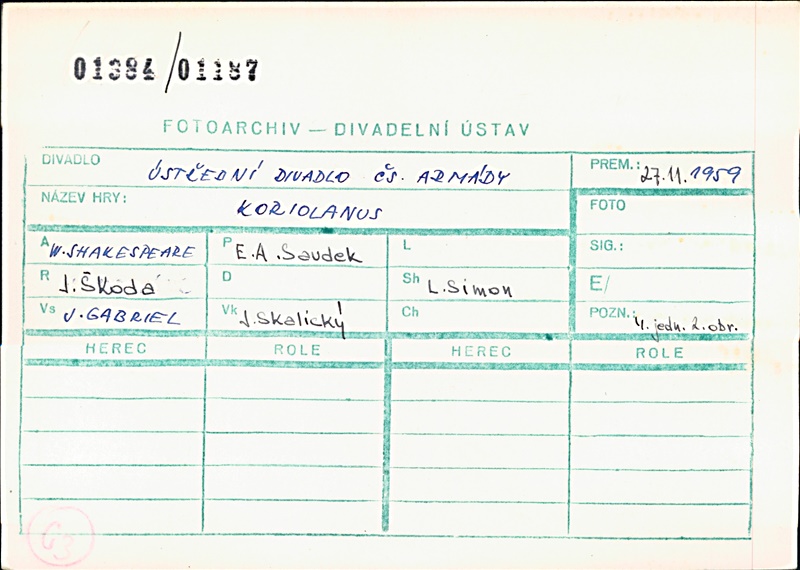 01384/01187
FOTOARCHIV — DIVADELNÍ ÚSTAV
DIVADLO ÚSTŘEDNÍ DIVADLO ČS. ARMÁDY
PREM.: 27.11.1959
NÁZEV HRY: KORIOLANUS
FOTO
A W. SHAKESPEARE P E.A. Saudek L SIG.:
R J. Škoda D Sh L. Simon E/
Vs J. GABRIEL Vk J. Skalický Ch POZN.: 4. jedn. 2. obr.
HEREC ROLE HEREC ROLE
G3